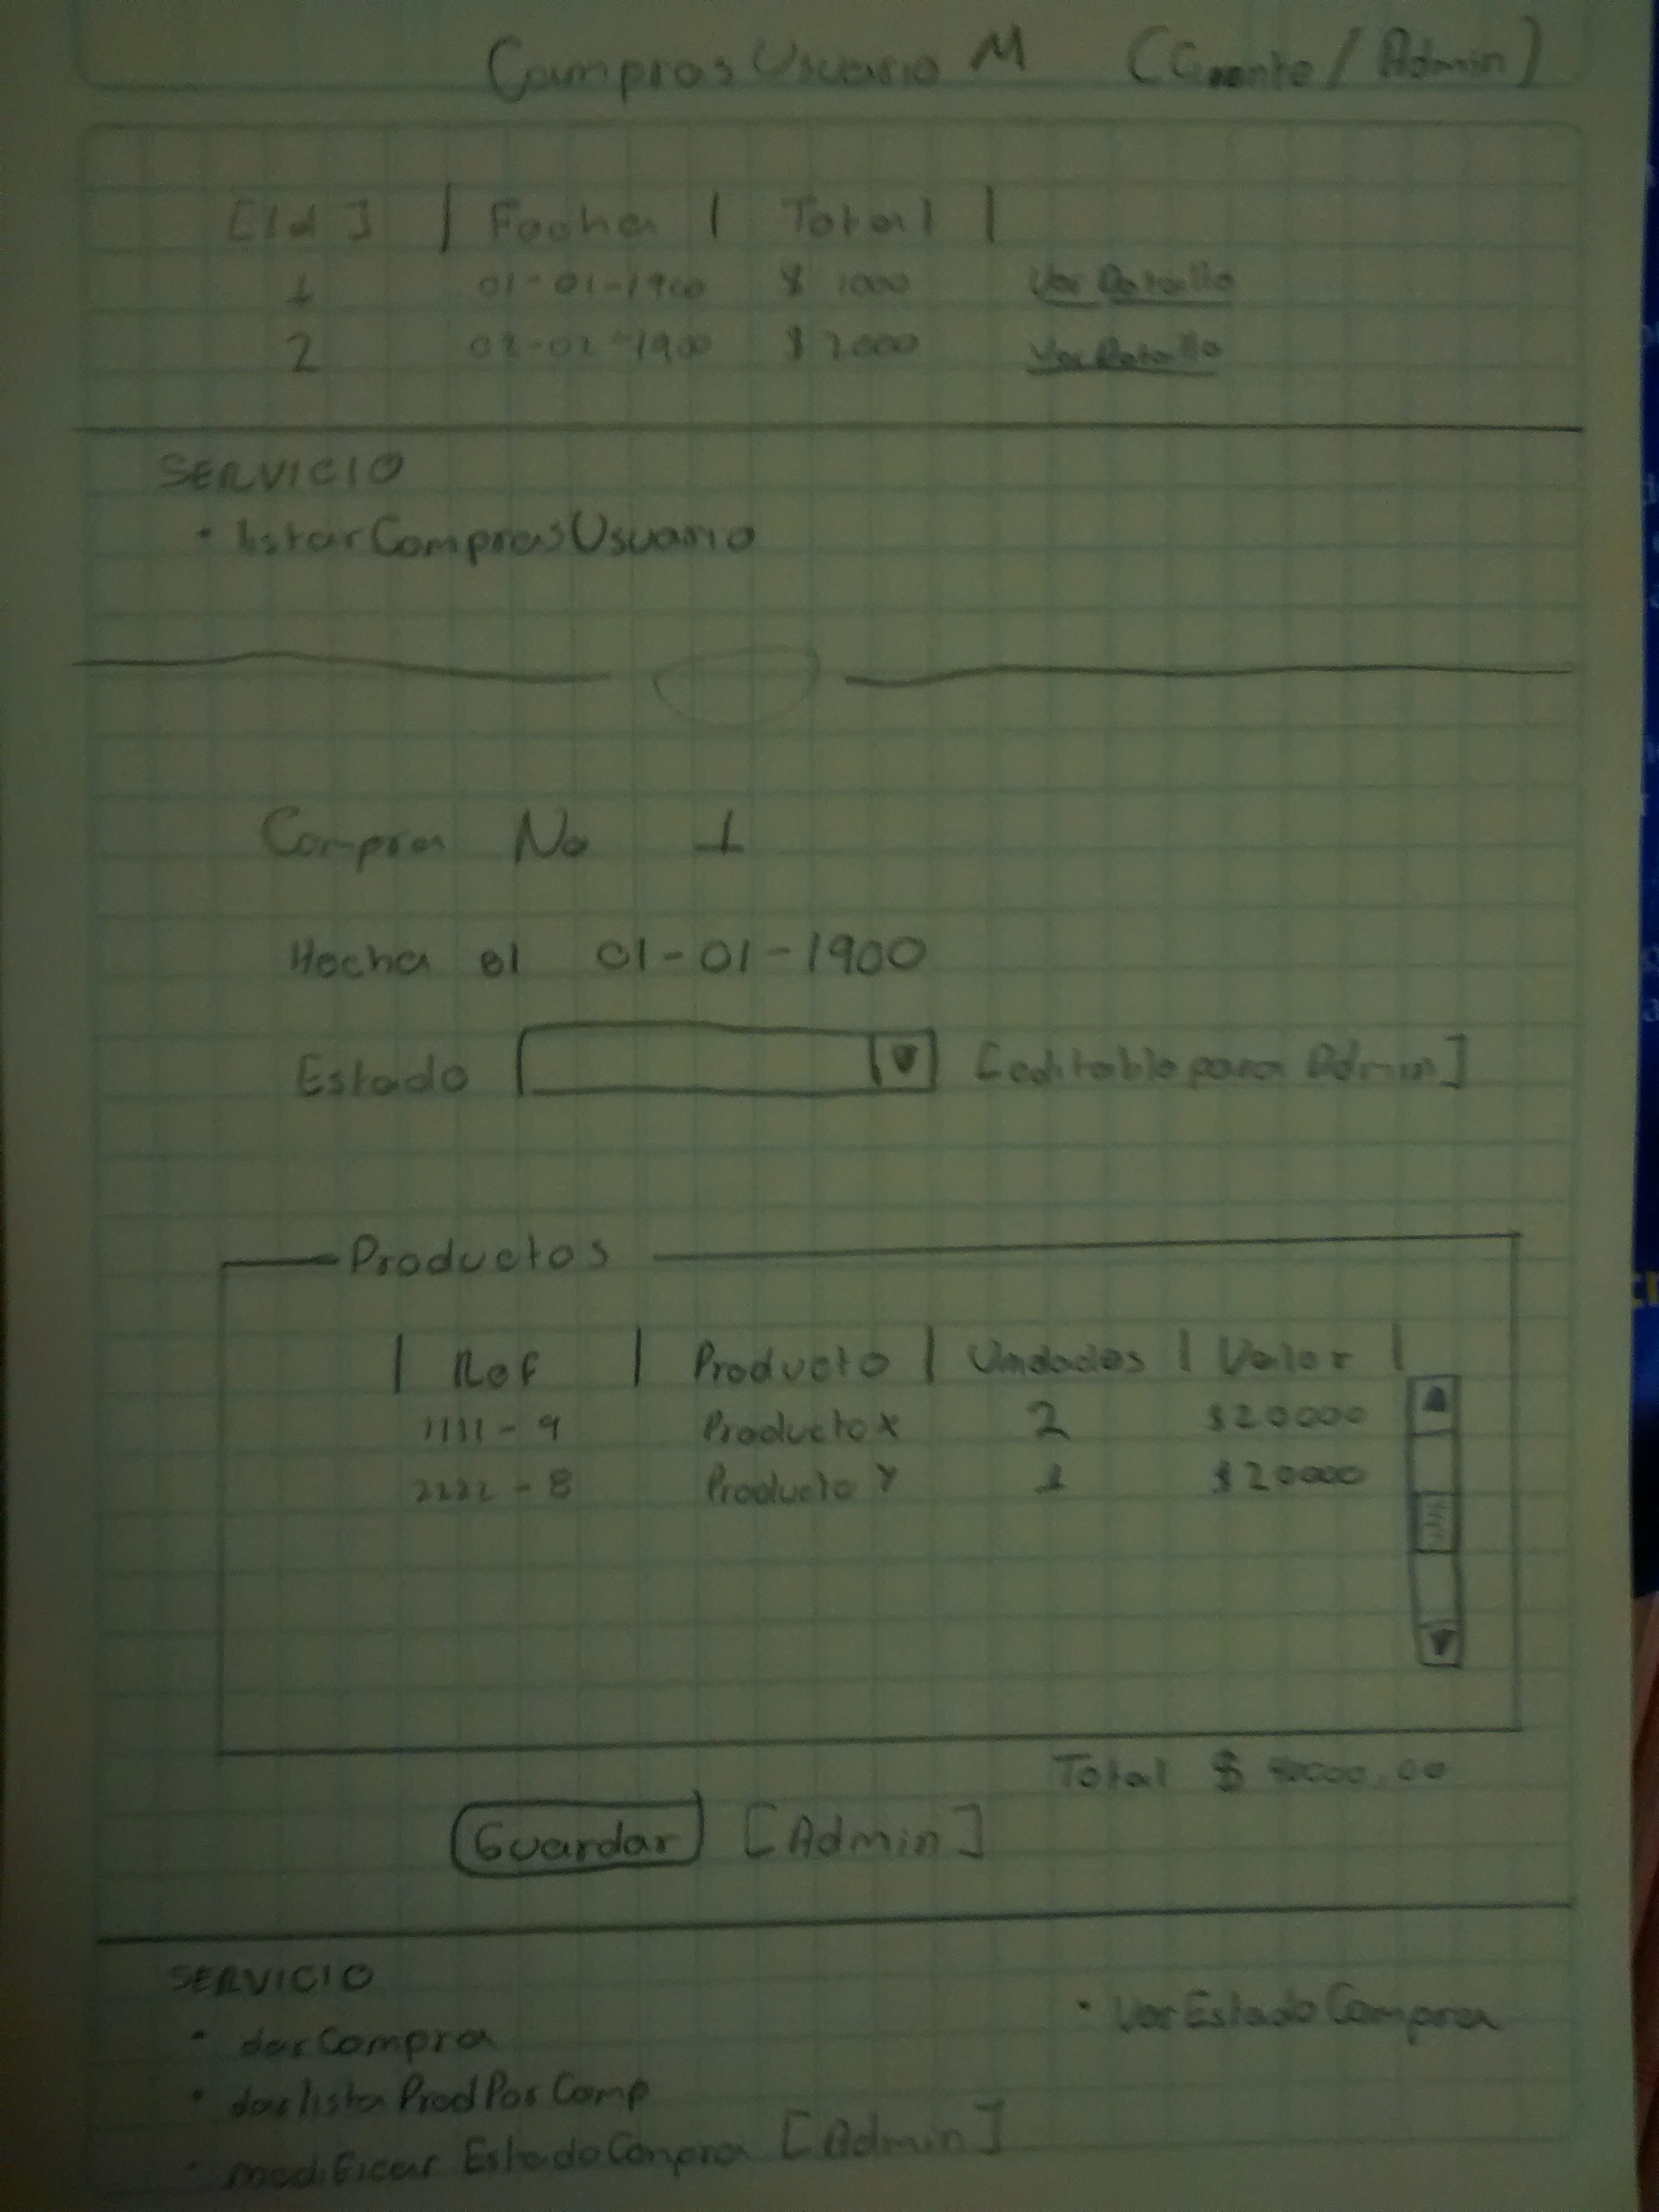 Compras Usuario M (Gerente / Admin)
[Id] | Fecha | Total |
1 01-01-1900 $ 1000 Ver Detalle
2 02-02-1900 $ 2000 Ver Detalle
SERVICIO
• listarComprasUsuario
Compra No 1
Hecha el 01-01-1900
Estado [editable para Admin]
Productos
| Ref | Producto | Unidades | Valor |
1111-9 Producto X 2 $20000
2222-8 Producto Y 1 $20000
Total $ 40000.00
Guardar [Admin]
SERVICIO
• darCompra
• verEstadoCompra
• darlistaProdPorComp
• modificar EstadoCompra [Admin]